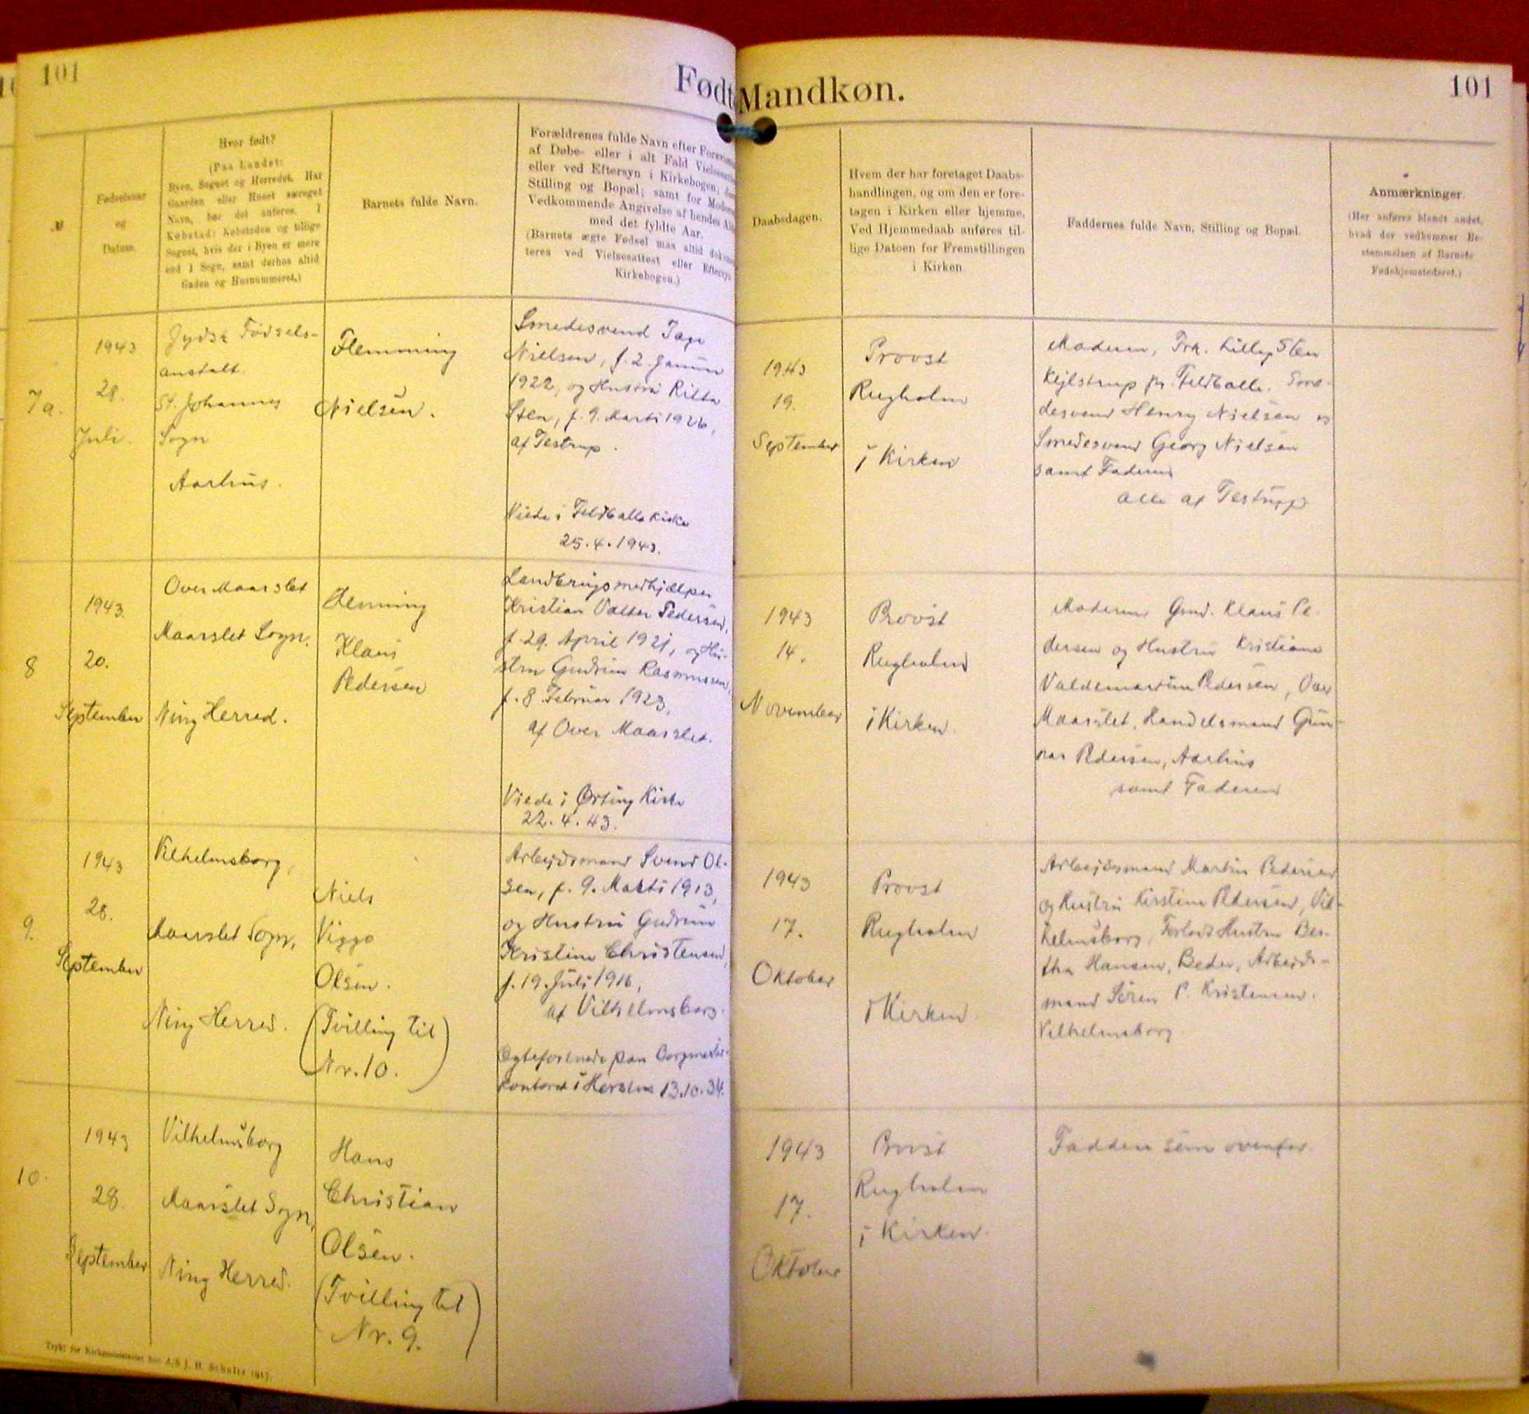 101
Født
Mandkøn.
101
№
Fødselsaar
og
Datum.
Hvor født?
(Paa Landet:
Byen, Sognet og Herredet. Har
Gaarden eller Huset særeget
Navn, bør det anføres. I
Købstad: Købstaden og tillige
Sognet, hvis der i Byen er mere
end 1 Sogn, samt derhos altid
Gaden og Husnummeret.)
Barnets fulde Navn.
Forældrenes fulde Navn efter
af Døbe- eller i alt Fald
eller ved Eftersyn i Kirkebogen,
Stilling og Bopæl; samt for
Vedkommende Angivelse af hendes
med det fyldte Aar.
(Barnets ægte Fødsel maa altid
teres ved Vielsesattest eller
Kirkebogen.)
Daabsdagen.
Hvem der har foretaget Daabs-
handlingen, og om den er fore-
tagen i Kirken eller hjemme.
Ved Hjemmedaab anføres til-
lige Datoen for Fremstillingen
i Kirken
Faddernes fulde Navn, Stilling og Bopæl.
Anmærkninger.
(Her anføres blandt andet,
hvad der vedkommer Be-
stemmelsen af Barnets
Fødehjemstedsret.)
7a.
1943
28.
Juli.
Jydsk Fødsels-
anstalt.
St. Johannes
Sogn
Aarhus.
Flemming
Nielsen.
Smedesvend Tage
Nielsen, f. 2. Januar
1922, og Hustru Ritta
Sten, f. 9. Marts 1926,
af Testrup.
Viede i Feldballe Kirke
25.4.1943.
1943
19.
September
Provst
Rugholm
i Kirken
Moderen, Frk. Lilly Sten
Kejlstrup pr. Feldballe. Sme-
desvend Henry Nielsen og
Smedesvend Georg Nielsen
samt Faderen
alle af Testrup.
8
1943.
20.
September
Over Maarslet
Maarslet Sogn,
Ning Herred.
Henning
Klaus
Pedersen
Landbrugsmedhjælper
Kristian Valter Pedersen,
f. 29. April 1921, og Hu-
stru Gudrun Rasmussen,
f. 8. Februar 1923,
af Over Maarslet.
Viede i Ørting Kirke
22.4.43.
1943
14.
November
Provst
Rugholm
i Kirken.
Moderen Gmd. Klaus Pe-
dersen og Hustru Kristiane
Valdemarine Pedersen, Over
Maarslet, Handelsmand Gun-
nar Pedersen, Aarhus
samt Faderen
9.
1943
28.
September
Vilhelmsborg,
Maarslet Sogn,
Ning Herred.
Niels
Viggo
Olsen.
(Tvilling til
Nr. 10.)
Arbejdsmand Svend Ol-
sen, f. 9. Marts 1913,
og Hustru Gudrun
Kristine Christensen,
f. 19. Juli 1916,
af Vilhelmsborg.
Ægteforenede paa Borgmester-
kontoret i Horsens 13.10.34.
1943
17.
Oktober
Provst
Rugholm
i Kirken.
Arbejdsmand Martin Pedersen
og Hustru Kirstine Pedersen, Vil-
helmsborg, Hustru Ber-
tha Hansen, Beder, Arbejds-
mand Sören P. Kristensen.
Vilhelmsborg.
10.
1943
28.
September
Vilhelmsborg
Maarslet Sogn,
Ning Herred.
Hans
Christian
Olsen.
(Tvilling til
Nr. 9.)
1943
17.
Oktober
Provst
Rugholm
i Kirken.
Faddere som ovenfor.
Trykt for Kirkeministeriet hos A/S J. H. Schultz